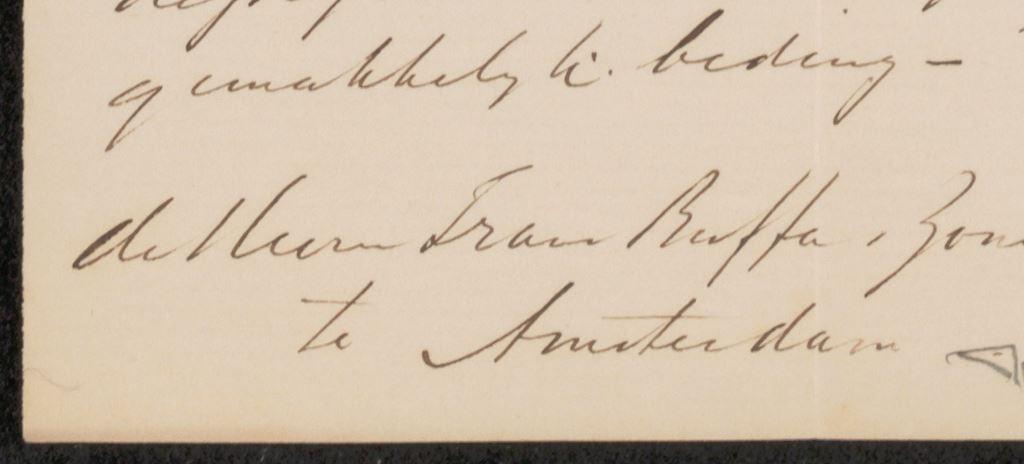 gemakkelyk. beding –
de Heeren Frans Buffa & Zone
te Amsterdam